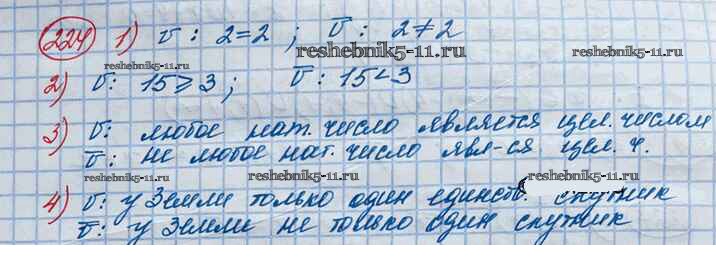 224 1) v: 2=2 ; v̅: 2≠2
reshebnik5-11.ru
reshebnik5-11.ru reshebnik5-11.ru
2) v: 15⩾3; v̅: 15<3
reshebnik5-11.ru reshebnik5-11.ru
3) v: любое нат. число является цел. числом
v̅: не любое нат. число явл-ся цел. ч.
reshebnik5-11.ru reshebnik5-11.ru
4) v: у Земли только один единств. спутник
v̅: у Земли не только один спутник